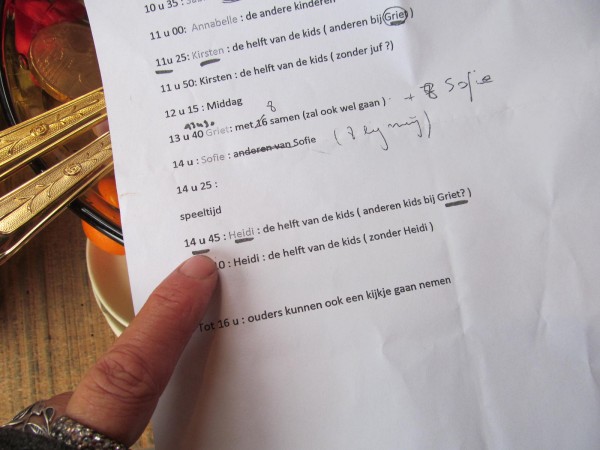 10 u 35 :
11 u 00: Annabelle : de andere kinderen
11u 25: Kirsten : de helft van de kids ( anderen bij Griet )
11 u 50: Kirsten : de helft van de kids ( zonder juf ?)
12 u 15 : Middag
8
13 u 40 Griet: met 16 samen (zal ook wel gaan ) + 8 Sofie
14 u : Sofie : anderen van Sofie
14 u 25 :
speeltijd
14 u 45 : Heidi : de helft van de kids ( anderen kids bij Griet? )
0 : Heidi : de helft van de kids ( zonder Heidi )
Tot 16 u : ouders kunnen ook een kijkje gaan nemen